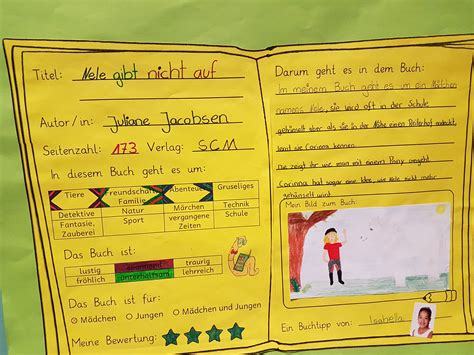 Titel: Nele gibt nicht auf
Autor/in: Juliane Jacobsen
Seitenzahl: 173 Verlag: SCM
In diesem Buch geht es um:
Tiere Freundschaft Familie Abenteuer Gruseliges
Detektive Natur Märchen Technik
Fantasie, Zauberei Sport vergangene Zeiten Schule
Das Buch ist:
lustig spannend traurig
fröhlich unterhaltsam lehrreich
Das Buch ist für:
Mädchen Jungen Mädchen und Jungen
Meine Bewertung:
Darum geht es in dem Buch:
In meinem Buch geht es um ein Mädchen
namens Nele, sie wird oft in der Schule
gehänselt aber als sie in der Nähe einen Reiterhof entdeckt
lernt sie Corinna kennen.
Die zeigt ihr wie man mit einem Pony umgeht
Corinna hat sogar eine Idee, wie Nele nicht mehr
gehänselt wird.
Mein Bild zum Buch:
Ein Buchtipp von: Isabella